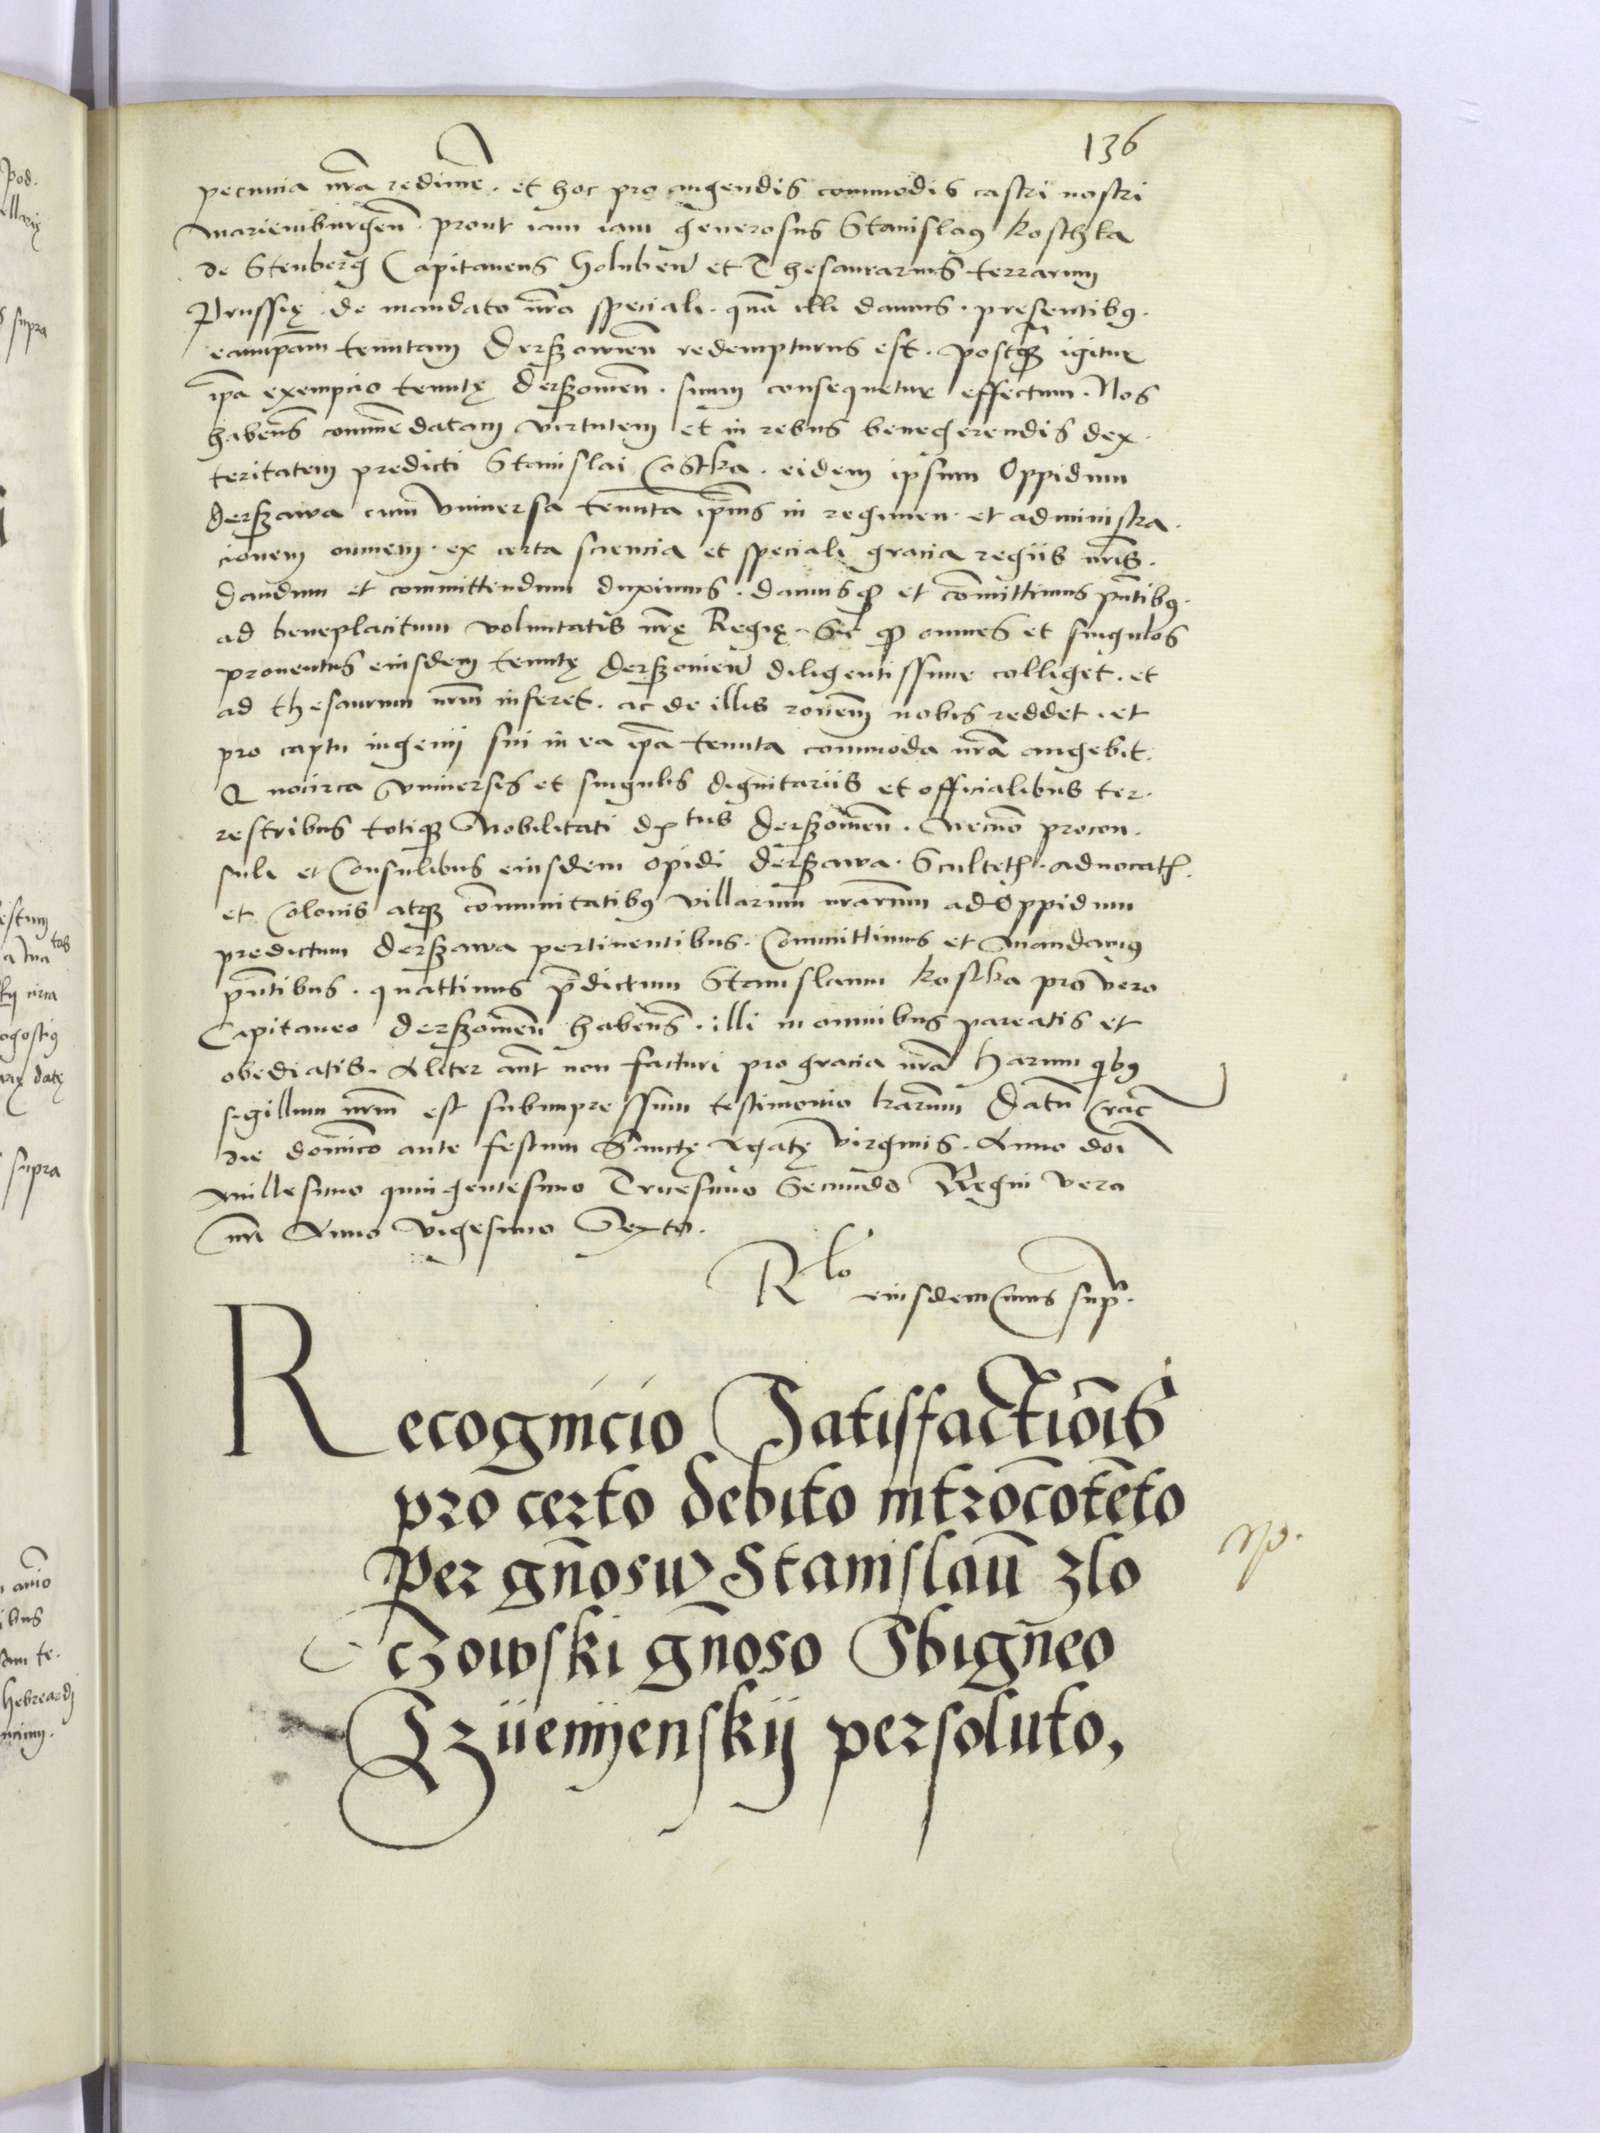 136
pecunia nrã redimẽ. et hoc pro augendis commodis castri nostri
Mariemburgeñ. prout iam iam generosus Stanislaꝰ Koschka
de Stenberg Capitaneus Holubeñ et Thesaurarius terrarum
Prussię. de mandato nrõ speciali. quã illi damus. presentibꝰ.
eampãm tenutam Derszowieñ redempturus est. postq̃ igitur
ip̃a exempcio tenutę Derszowieñ. suum consequetur effectum. Nos
habeñs commẽdatam virtutem et in rebus benegerendis dex.
teritatem predicti Stanislai Costka. eidem ipsum Oppidum
Derszawa cum vniuersa tenuta ip̃ius in regimen et administra.
cionem omnem. ex certa sciencia et speciali gracia regiis nrĩs.
dandum et committendum duximus. damusqꝫ et cõmittimus pñtibꝰ.
ad beneplacitum voluntatis nrę̃ Regię. Sic qꝫ omnes et singulos
prouentus eiusdem tenutę Derszowieñ diligentissime colliget. et
ad thesaurum nrm̃ inferet. ac de illis roñem nobis reddet. et
pro captu ingenij sui in ea ip̃a tenuta commoda nrã augebit.
Q uocirca vniuersis et singulis dignitariis et officialibus ter.
restribus totiqꝫ Nobilitati d̃ctus Derszowieñ. Necnõ procon.
suli et Consulibus eiusdem opidi Derszawa. Scultetꝭ. aduocatꝭ.
et Colonis atqꝫ cõmunitatibꝰ villarum nrãrum ad Oppidum
predictum Derszawa pertinentibus. Committimus et Mandamꝰ
pñtibus. quattinus p̃dictum Stanislaum Kostka pro vero
Capitaneo Derszowieñ habeñs. illi in omnibus pareatis et
obediatis. Aliter aũt non facturi pro gracia nrã Harum qibꝰ
sigillum nrm̃ est subimpressum testimonio lrãrum Datũ Crac̃
die dominico ante festum Sanctę Agatę virginis. Anno doĩ
Millesimo quingentesimo Tricesimo Secundo Regni vero
nrĩ Anno vigesimo Sexto.
Rlo
eiusdem Cuius sup̃.
Recognicio Satisfactiõis
pro certo debito introcõtẽto
Per gñosũ Stanislaũ Zlo
czowski gñoso Sbigñeo
Tzijemijenskij persoluto,